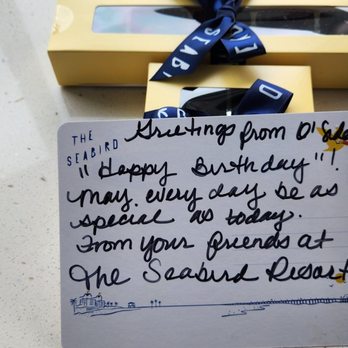 SEAB
THE
SEABIRD
Greetings from O'Side
"Happy Birthday"!
May every day be as
special as today.
From your friends at
The Seabird Resort